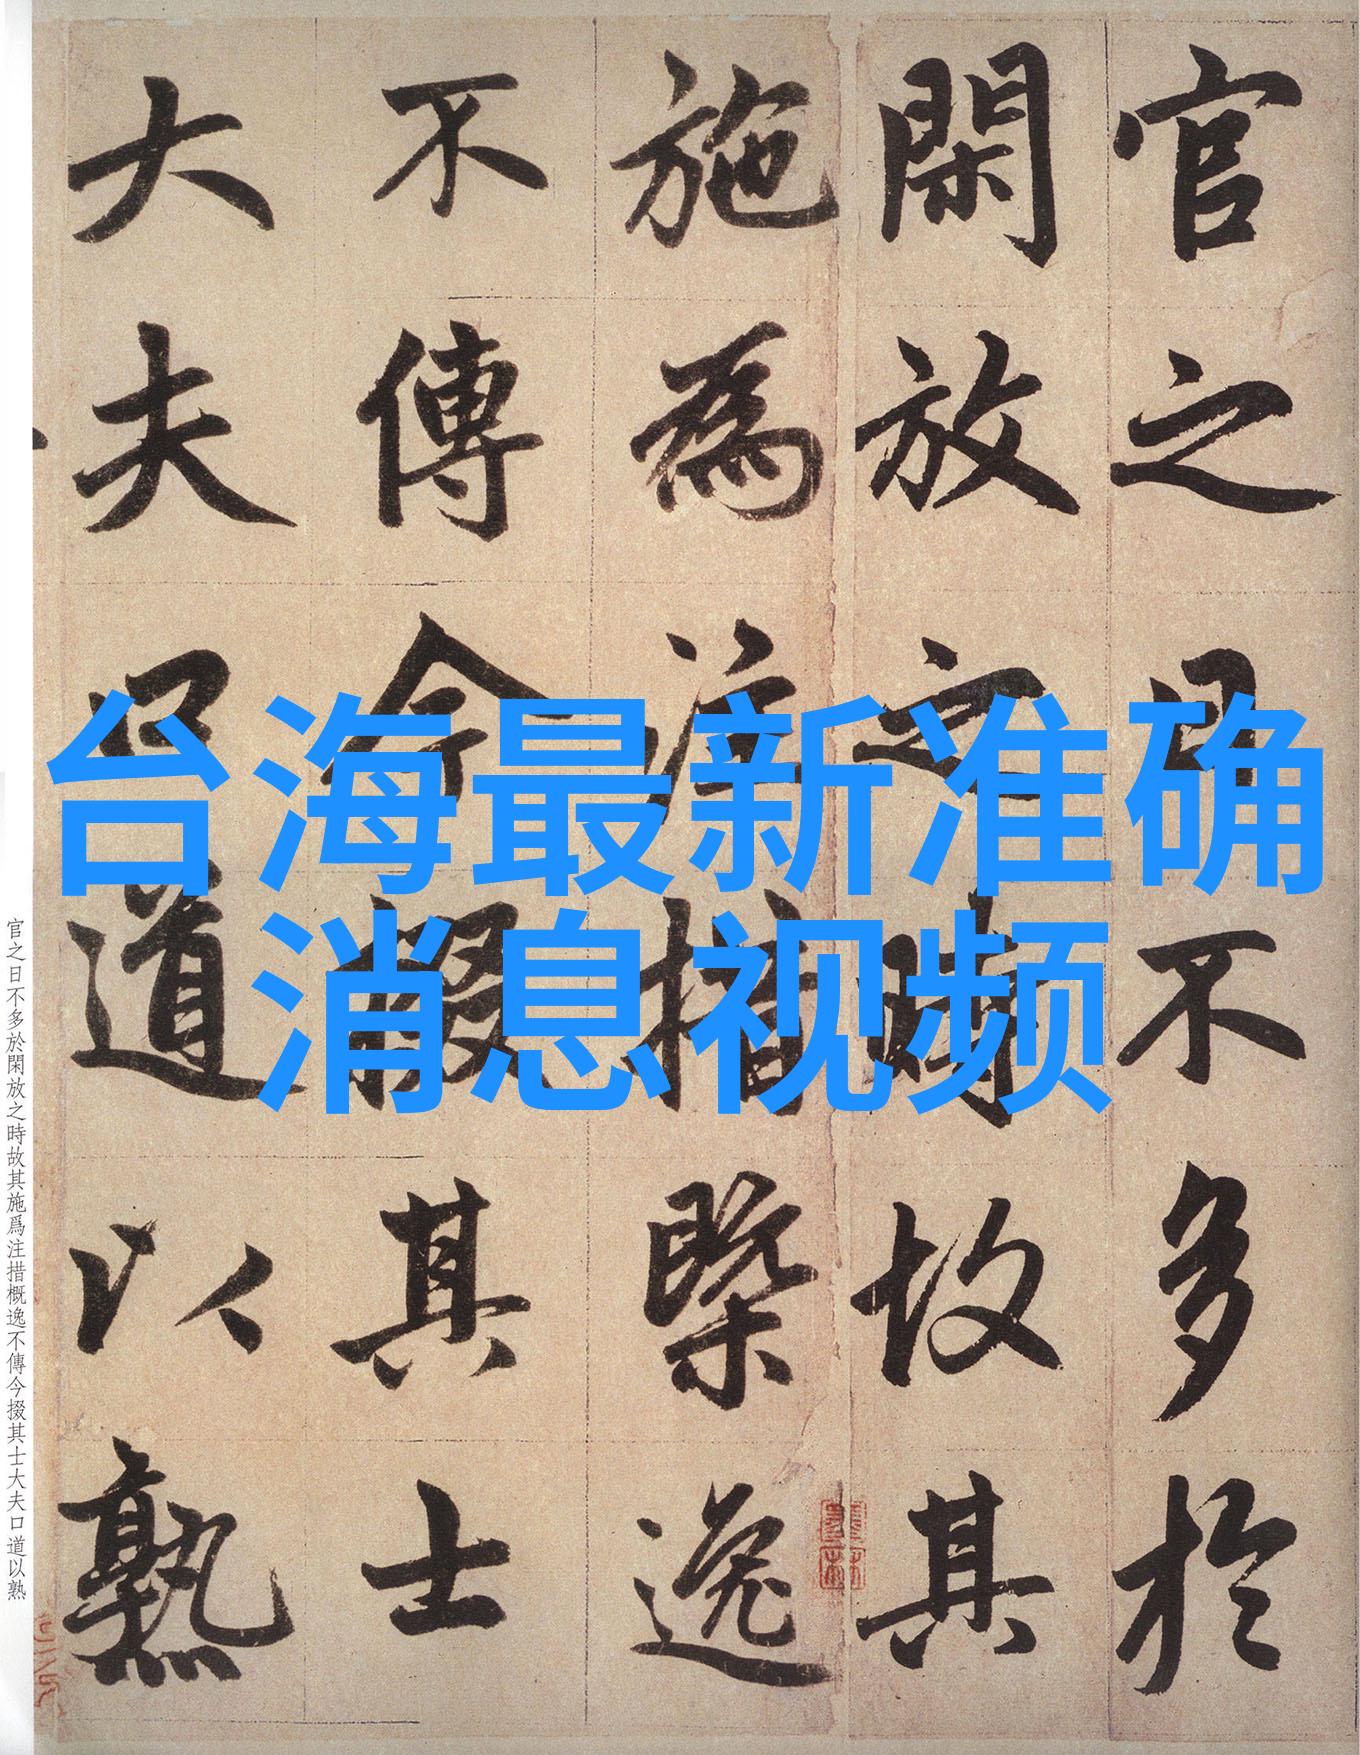 官之日不多於
閑放之時故其
施為注措槩逸
不傳今掇其士
大夫口道以熟
台海最新准确
消息视频
官之日不多於閑放之時故其施爲注措概逸不傳今掇其士大夫口道以熟